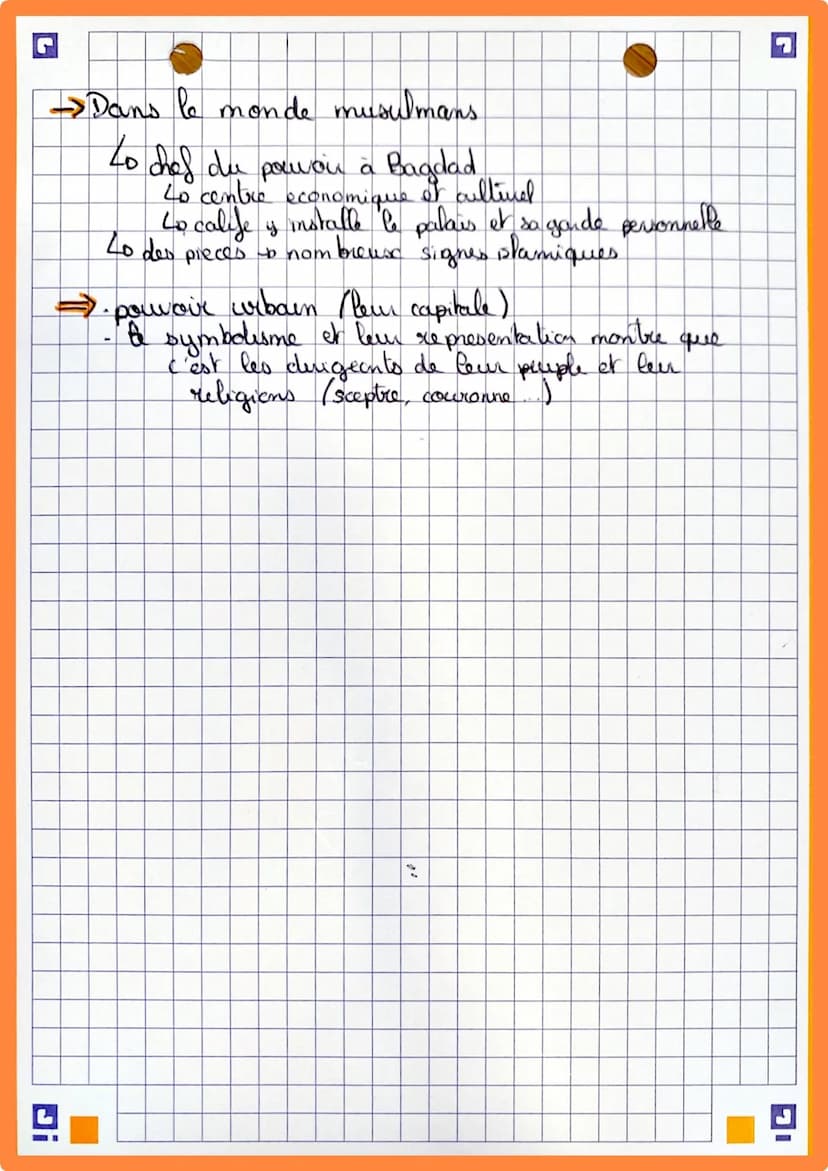 → Dans le monde musulmans
↳ chef du pouvoir à Bagdad
↳ centre economique et culturel
↳ calife y installe le palais et sa garde personnelle
↳ des pieces → nombreux signes islamiques
⇒ · pouvoir urbain (leur capitale)
- le symbolisme et leur representation montre que
c'est les dirigeants de leur peuple et leur
religions (sceptre, couronne ...)